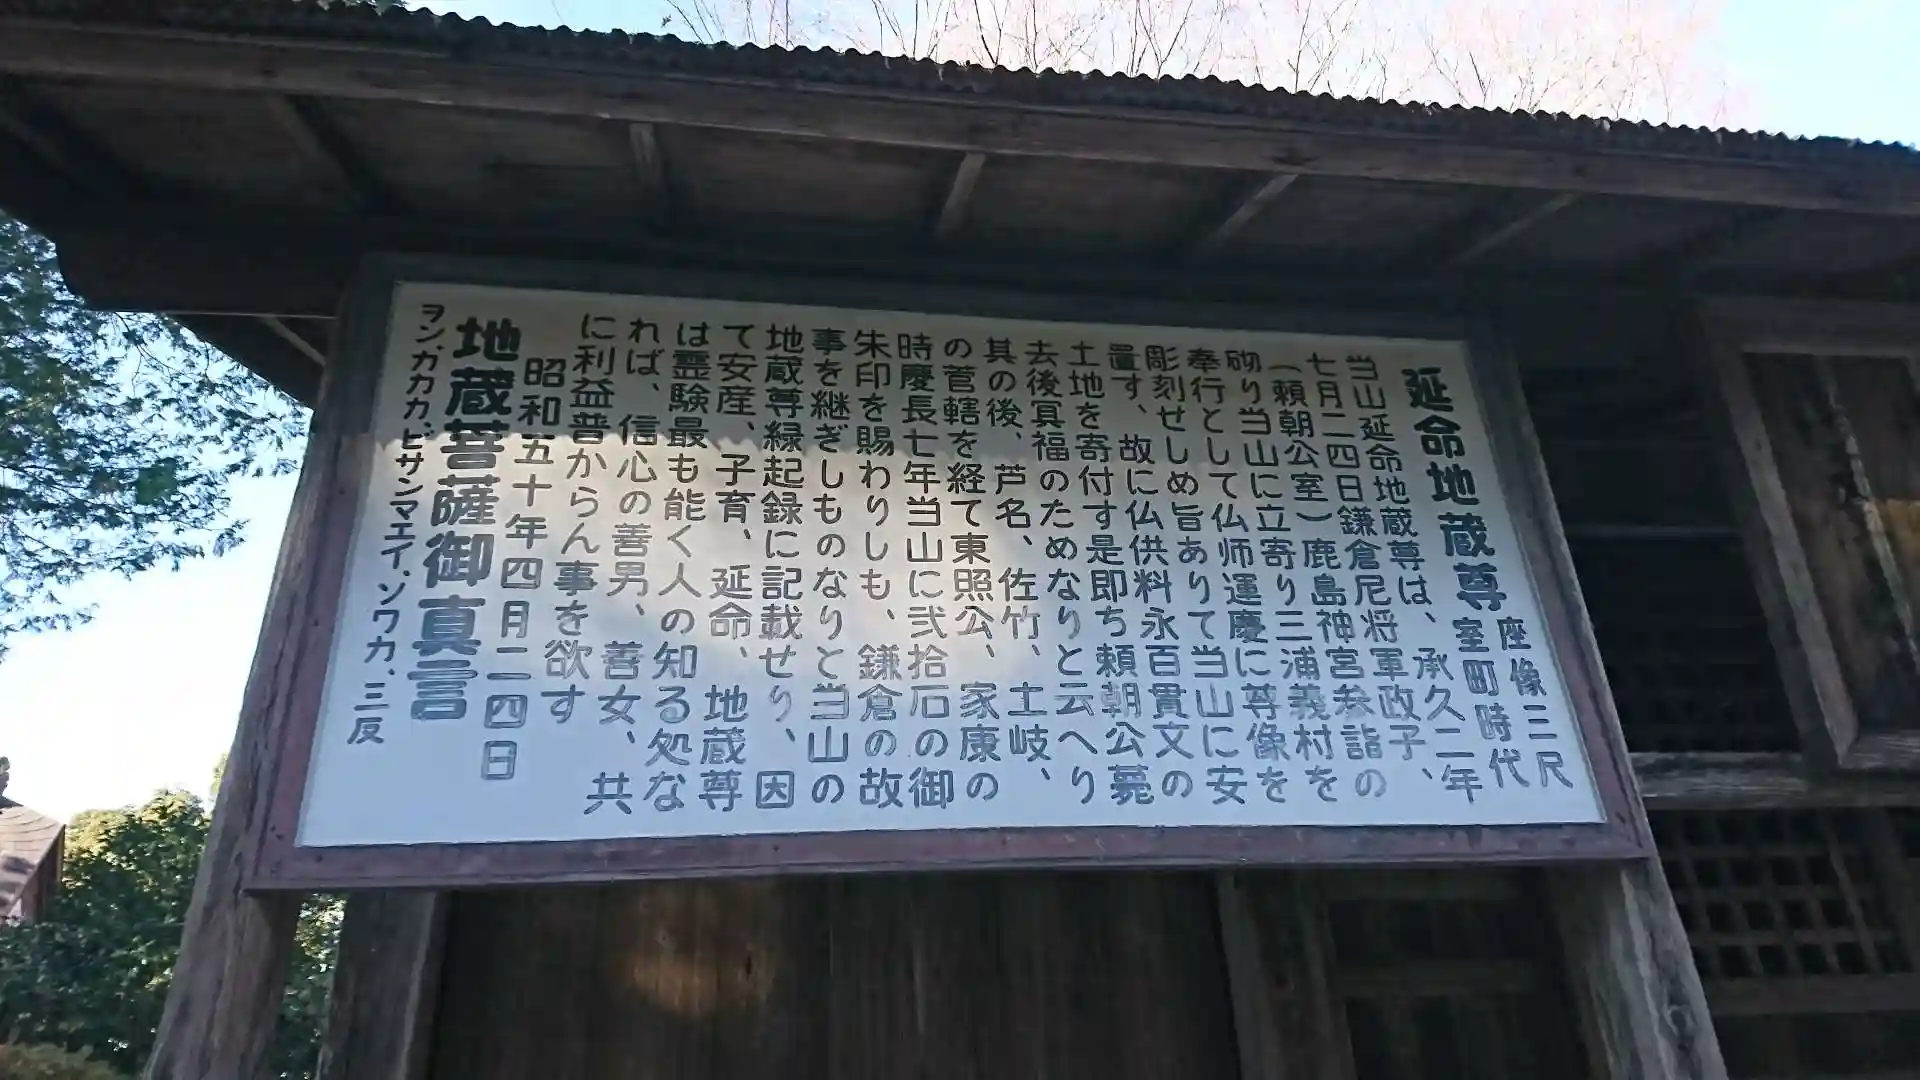 延命地蔵尊 座像三尺
室町時代
当山延命地蔵尊は、承久二年
七月二四日鎌倉尼将軍政子、
（頼朝公室）鹿島神宮参詣の
砌り当山に立寄り三浦義村を
奉行として仏师運慶に尊像を
彫刻せしめ旨ありて当山に安
置す、故に仏供料永百貫文の
土地を寄付す是即ち頼朝公薨
去後冥福のためなりと云へり
其の後、芦名、佐竹、土岐、
の菅轄を経て東照公、家康の
時慶長七年当山に弐拾石の御
朱印を賜わりしも、鎌倉の故
事を継ぎしものなりと当山の
地蔵尊縁起録に記載せり、因
て安産、子育、延命、地蔵尊
は霊験最も能く人の知る処な
れば、信心の善男、善女、共
に利益普からん事を欲す
昭和五十年四月二四日
地蔵菩薩御真言
ヲン、カカカ、ビサンマエイ、ソワカ、三反